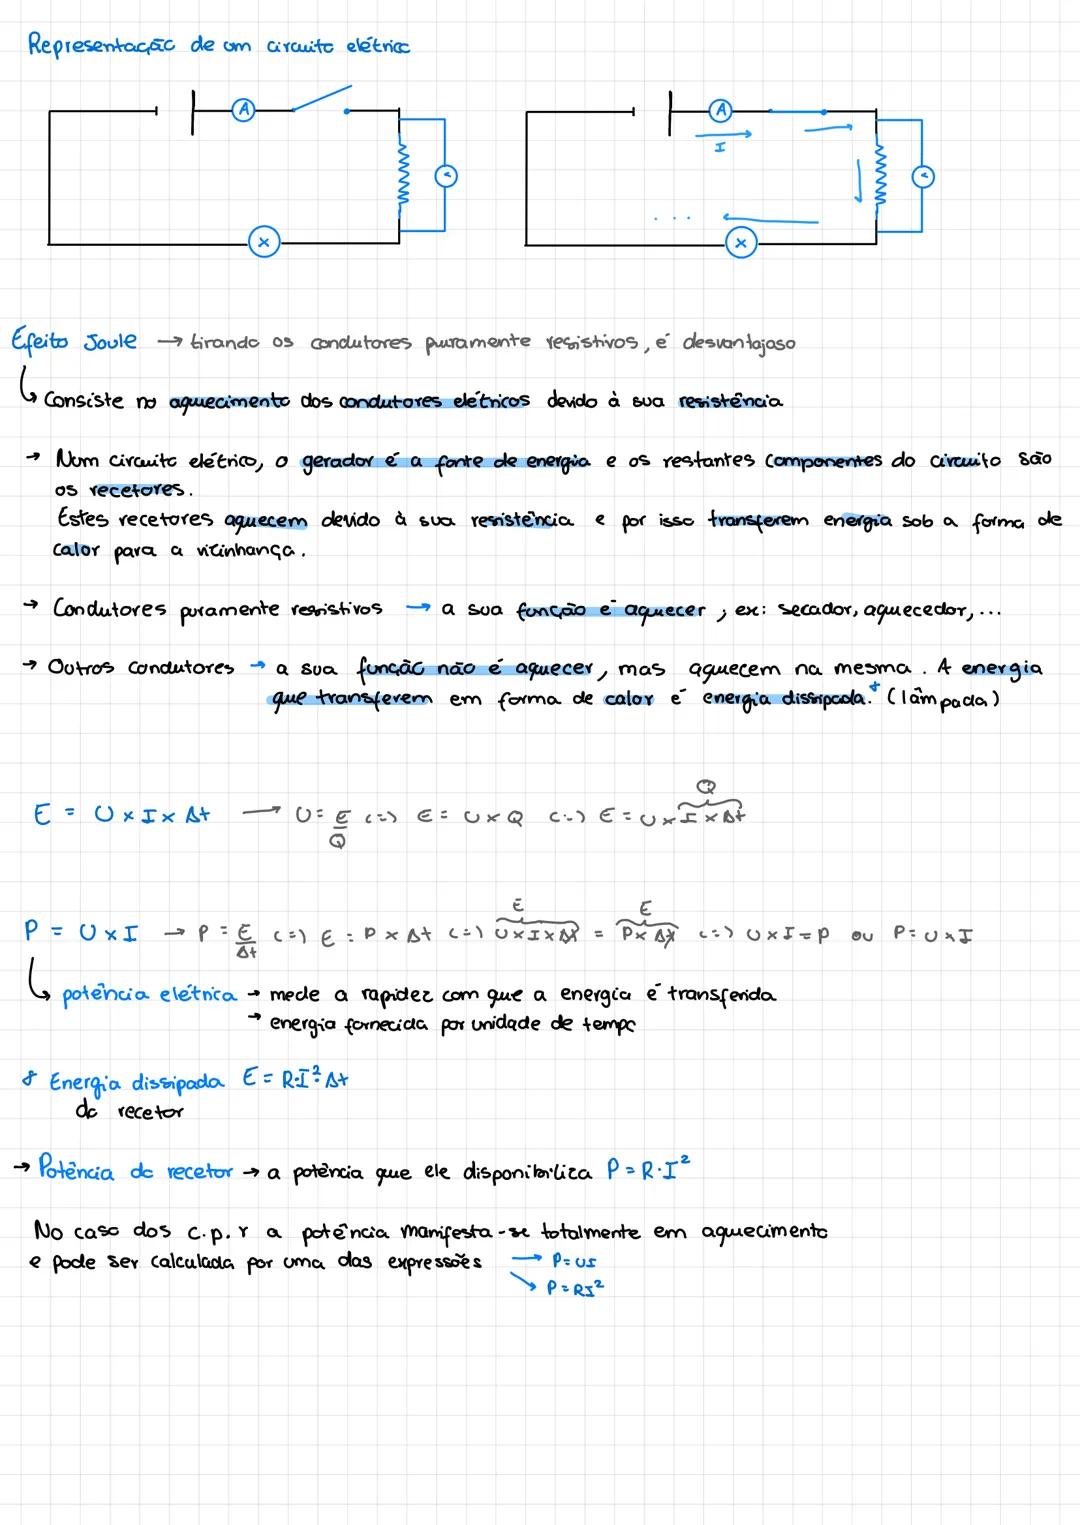 Representação de um circuito elétrico
A
A
I
V
V
X
X
. . .
Efeito Joule → tirando os condutores puramente resistivos, é desvantajoso
↳ Consiste no aquecimento dos condutores elétricos devido à sua resistência
→ Num circuito elétrico, o gerador é a fonte de energia e os restantes componentes do circuito são
os recetores.
Estes recetores aquecem devido à sua resistência e por isso transferem energia sob a forma de
calor para a vizinhança.
→ Condutores puramente resistivos → a sua função é aquecer, ex: secador, aquecedor,...
→ Outros condutores → a sua função não é aquecer, mas aquecem na mesma. A energia
que transferem em forma de calor é energia dissipada.* (lâmpada)
Q
E = U × I × Δt → U = E/Q (=) E = U × Q (=) E = U × I × Δt
E E
P = U × I → P = E/Δt (=) E = P × Δt (=) U × I × Δt = P × Δt (=) U × I = P ou P = U × I
↳ potência elétrica → mede a rapidez com que a energia é transferida
→ energia fornecida por unidade de tempo
* Energia dissipada E = R·I²·Δt
do recetor
→ Potência do recetor → a potência que ele disponibiliza P = R·I²
No caso dos c.p.r a potência manifesta-se totalmente em aquecimento
e pode ser calculada por uma das expressões → P = UI
↘ P = RI²